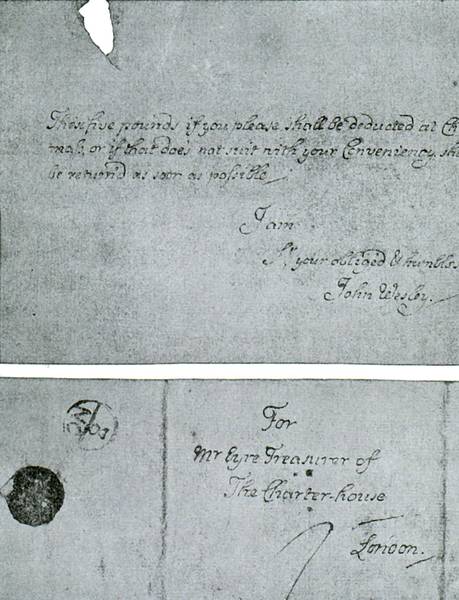 These five pounds if you please shall be deducted at Ch
mas, or if that does not suit with your Conveniency, sha
be return'd as soon as possible
I am
Sr your obliged & humble
John Wesley.
For
Mr Eyre Treasurer of
The Charter-house
London.